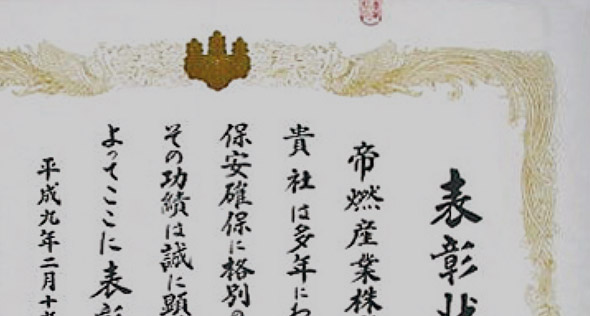 表彰状
帝燃産業株
貴社は多年にわ
保安確保に格別の
その功績は誠に顕
よってここに表彰
平成九年二月十